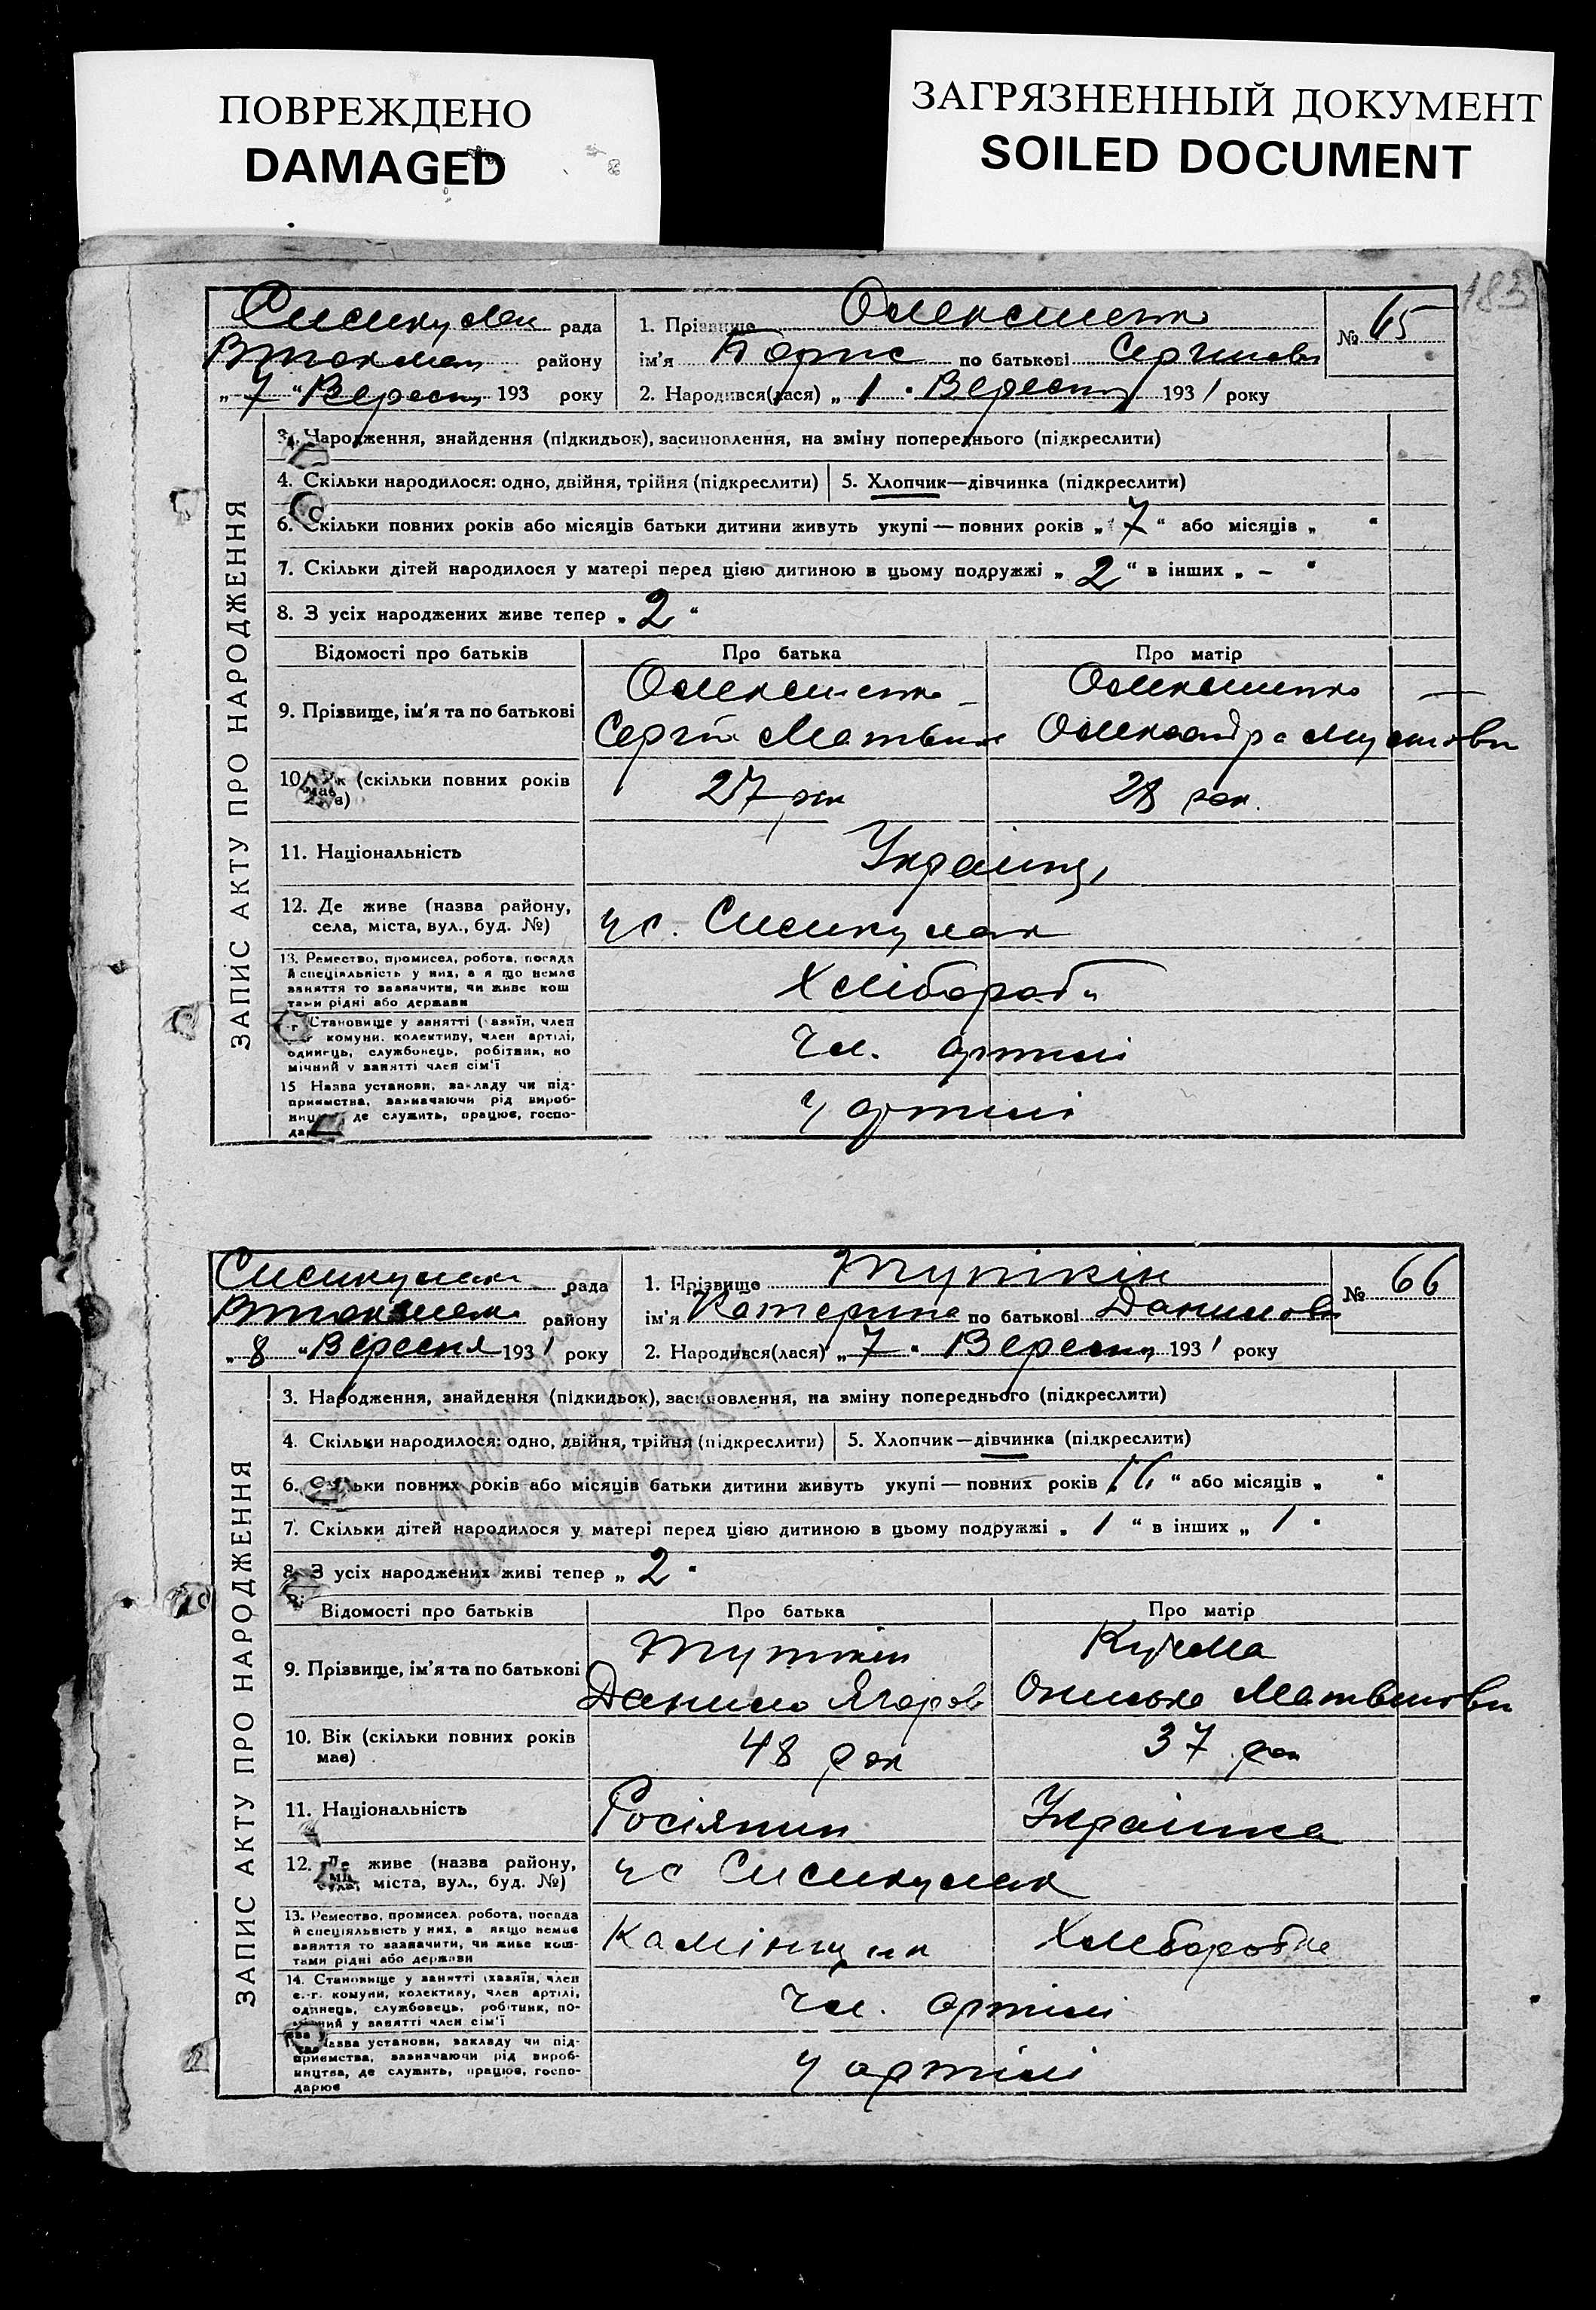 ПОВРЕЖДЕНО
DAMAGED
ЗАГРЯЗНЕННЫЙ ДОКУМЕНТ
SOILED DOCUMENT
183
ЗАПИС АКТУ ПРО НАРОДЖЕННЯ
рада
району
„ 7 “ 193 року
1. Прізвище Олексиенко
ім'я Борис по батькові
№ 65
2. Народився(лася) „ 1 “ 1931 року
3. Народження, знайдення (підкидьок), засиновлення, на зміну попереднього (підкреслити)
4. Скільки народилося: одно, двійня, трійня (підкреслити) 5. Хлопчик—дівчинка (підкреслити)
6. Скільки повних років або місяців батьки дитини живуть укупі — повних років „ 7 “ або місяців „ “
7. Скільки дітей народилося у матері перед цією дитиною в цьому подружжі „ 2 “ в інших „ – “
8. З усіх народжених живе тепер „ 2 “
Відомості про батьків Про батька Про матір
9. Прізвище, ім'я та по батькові
Олексиенко Олексиенко
Сергій Олександра
10. Вік (скільки повних років має) 27 рок 28 рок.
11. Національність Українці
12. Де живе (назва району, села, міста, вул., буд. №) у с.
13. Ремество, промисел, робота, посада
й спеціяльність у них, а я що немає
заняття то зазначити, чи живе кош
тами рідні або держави
Хлібороби
Становище у занятті (хазяїн, член
комуни, колективу, член артілі,
одинець, службовець, робітник, по
мічний у занятті член сім'ї
Чл. артілі
15 Назва установи, закладу чи під-
приємства, зазначаючи рід вироб-
ництва, де служить, працює, госпо-
дарює
у артілі
ЗАПИС АКТУ ПРО НАРОДЖЕННЯ
рада
району
„ 8 “ Вересня 1931 року
1. Прізвище Тупікін
ім'я Катерина по батькові Данилов
№ 66
2. Народився(лася) „ 7 “ 1931 року
3. Народження, знайдення (підкидьок), засиновлення, на зміну попереднього (підкреслити)
4. Скільки народилося: одно, двійня, трійня (підкреслити) 5. Хлопчик—дівчинка (підкреслити)
6. Скільки повних років або місяців батьки дитини живуть укупі — повних років „ “ або місяців „ “
7. Скільки дітей народилося у матері перед цією дитиною в цьому подружжі „ 1 “ в інших „ 1 “
8. З усіх народжених живі тепер „ 2 “
Відомості про батьків Про батька Про матір
9. Прізвище, ім'я та по батькові
Кучма
Данило Ягоров
10. Вік (скільки повних років має) 48 рок 37 рок
11. Національність Росіянин Українка
12. Де живе (назва району, села, міста, вул., буд. №) у с
13. Ремество, промисел, робота, посада
й спеціяльність у них, а якщо немає
заняття то зазначити, чи живе кош-
тами рідні або держави
Камінщик Хліборобка
14. Становище у занятті (хазяїн, член
с.-г. комуни, колективу, член артілі,
одинець, службовець, робітник, по-
мічний у занятті член сім'ї
Чл. артілі
Назва установи, закладу чи під-
приємства, зазначаючи рід вироб-
ництва, де служить, працює, госпо-
дарює
у артілі